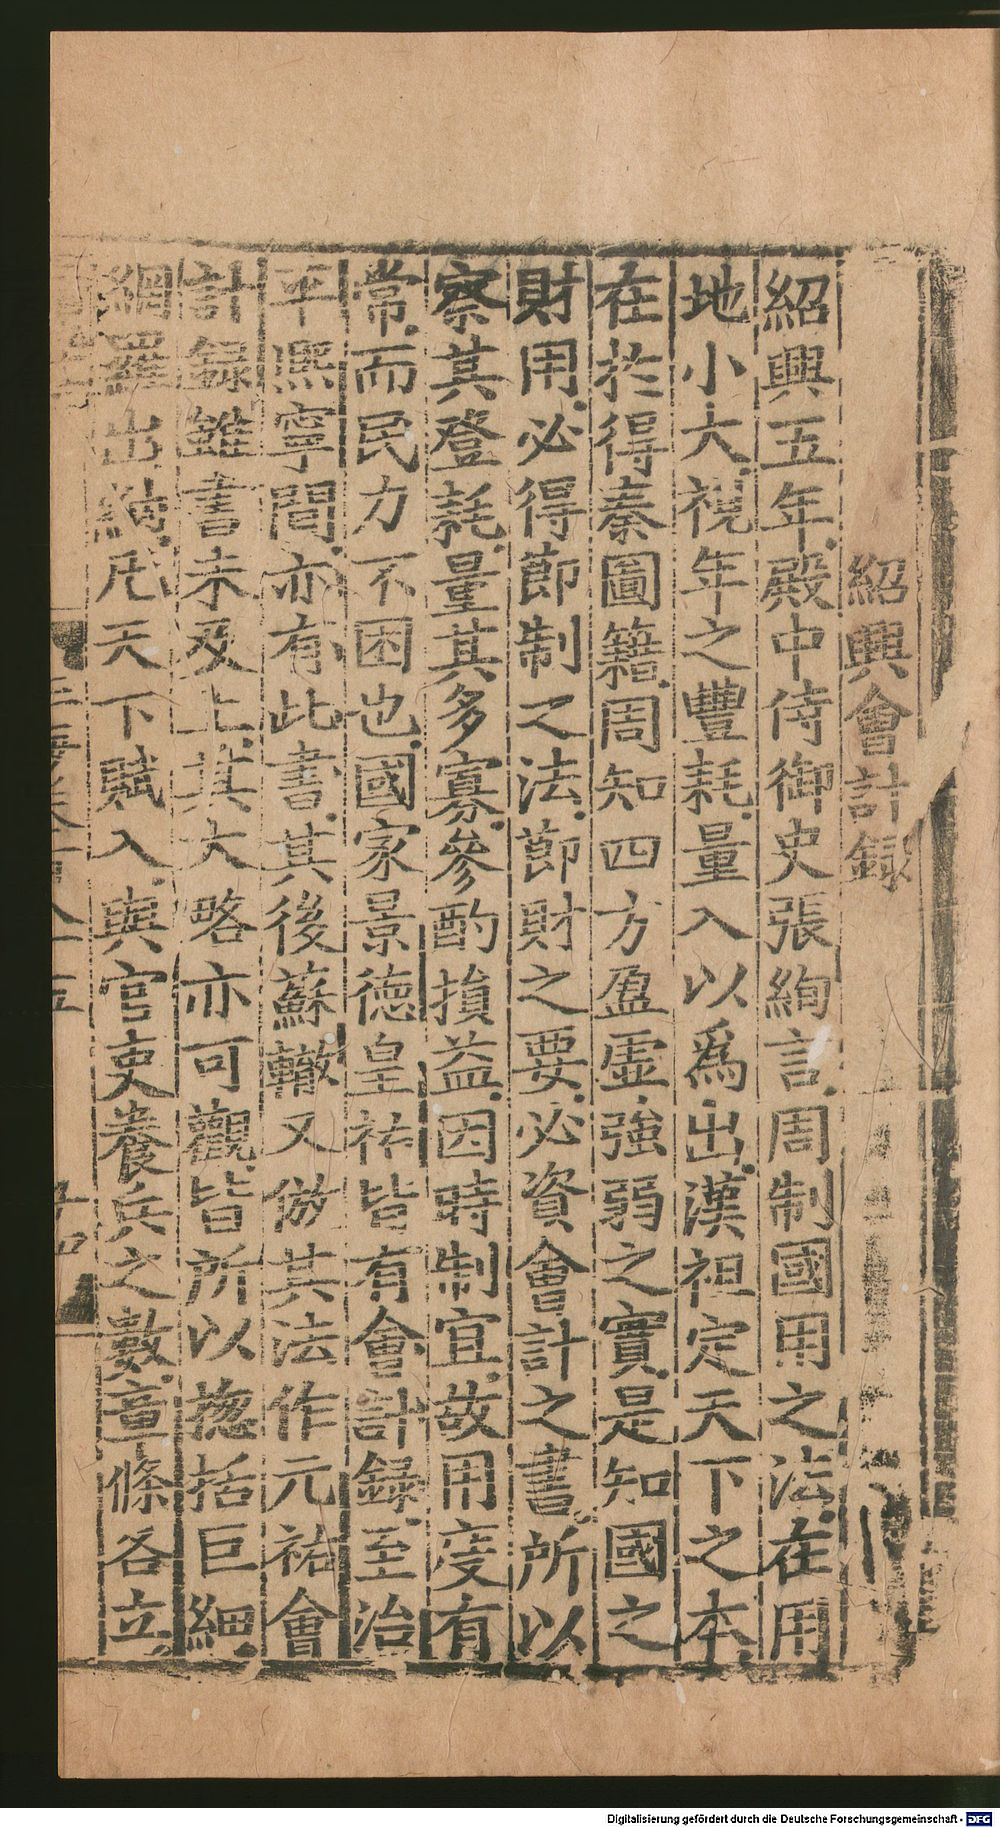 紹興會計録
紹興五年殿中侍御史張絢言周制國用之法在用
地小大視年之豐耗量入以爲出漢祖定天下之本
在於得秦圖籍周知四方盈虚強弱之實是知國之
財用必得節制之法節財之要必資會計之書所以
察其登耗量其多寡參酌損益因時制宜故用度有
常而民力不困也國家景德皇祐皆有會計録至治
平熙寧間亦有此書其後蘇轍又倣其法作元祐會
計録雖書未及上其大略亦可觀皆所以揔括巨細
網羅出納凡天下賦入與官吏養兵之數章條各立
Digitalisierung gefördert durch die Deutsche Forschungsgemeinschaft - DFG